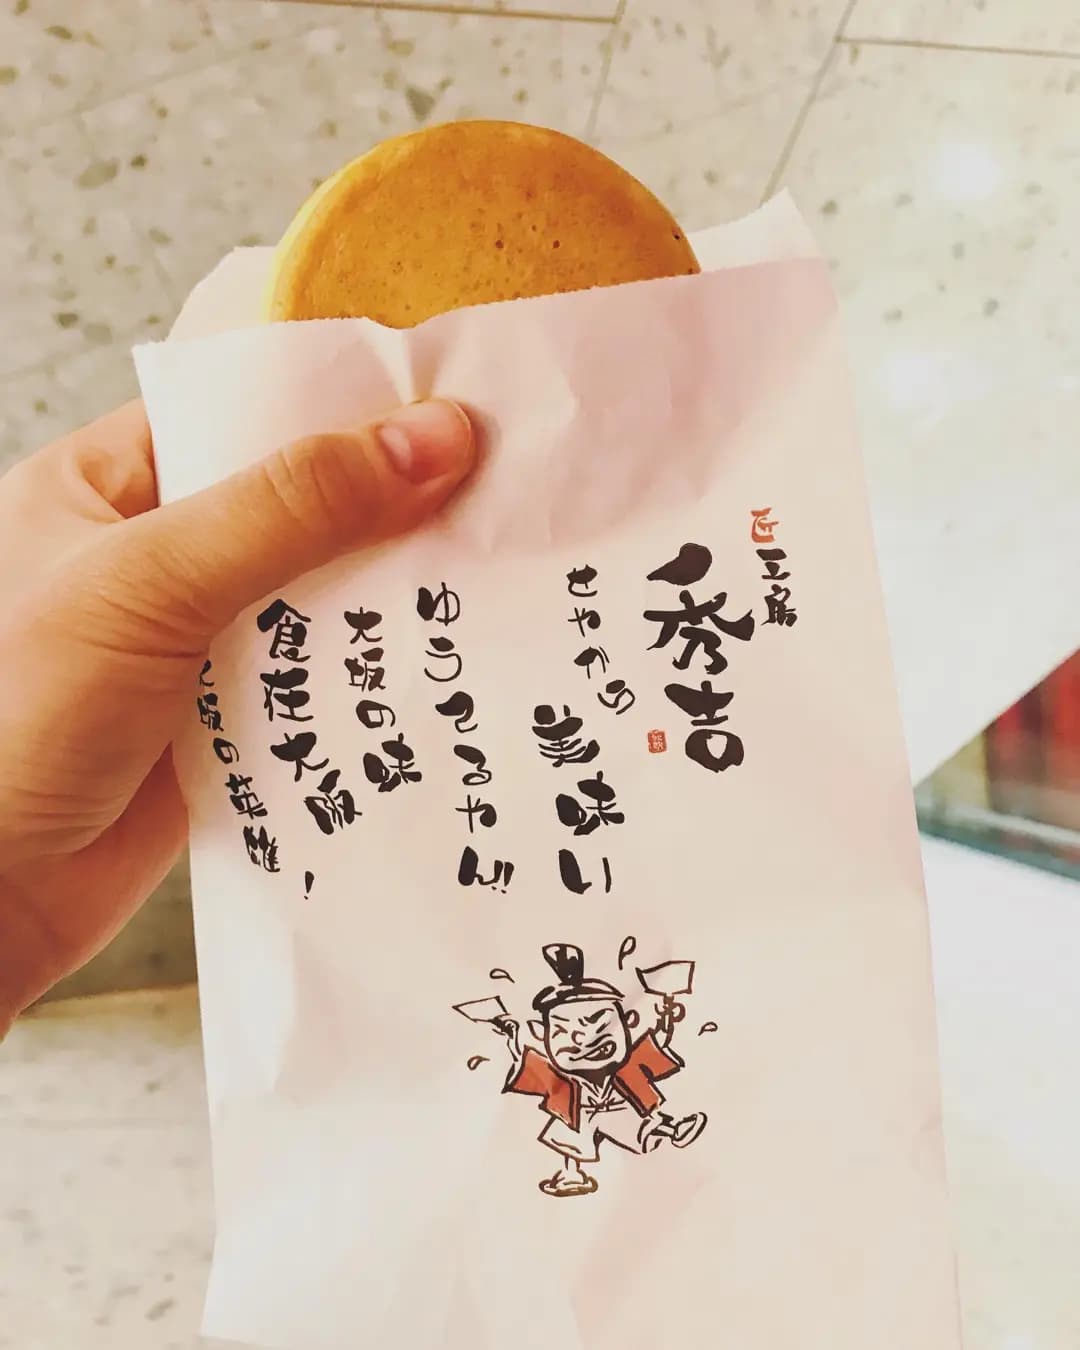 匠工房
秀吉
せやから
美味い
ゆうてるやん!!
大坂の味
食在大阪!
大坂の英雄